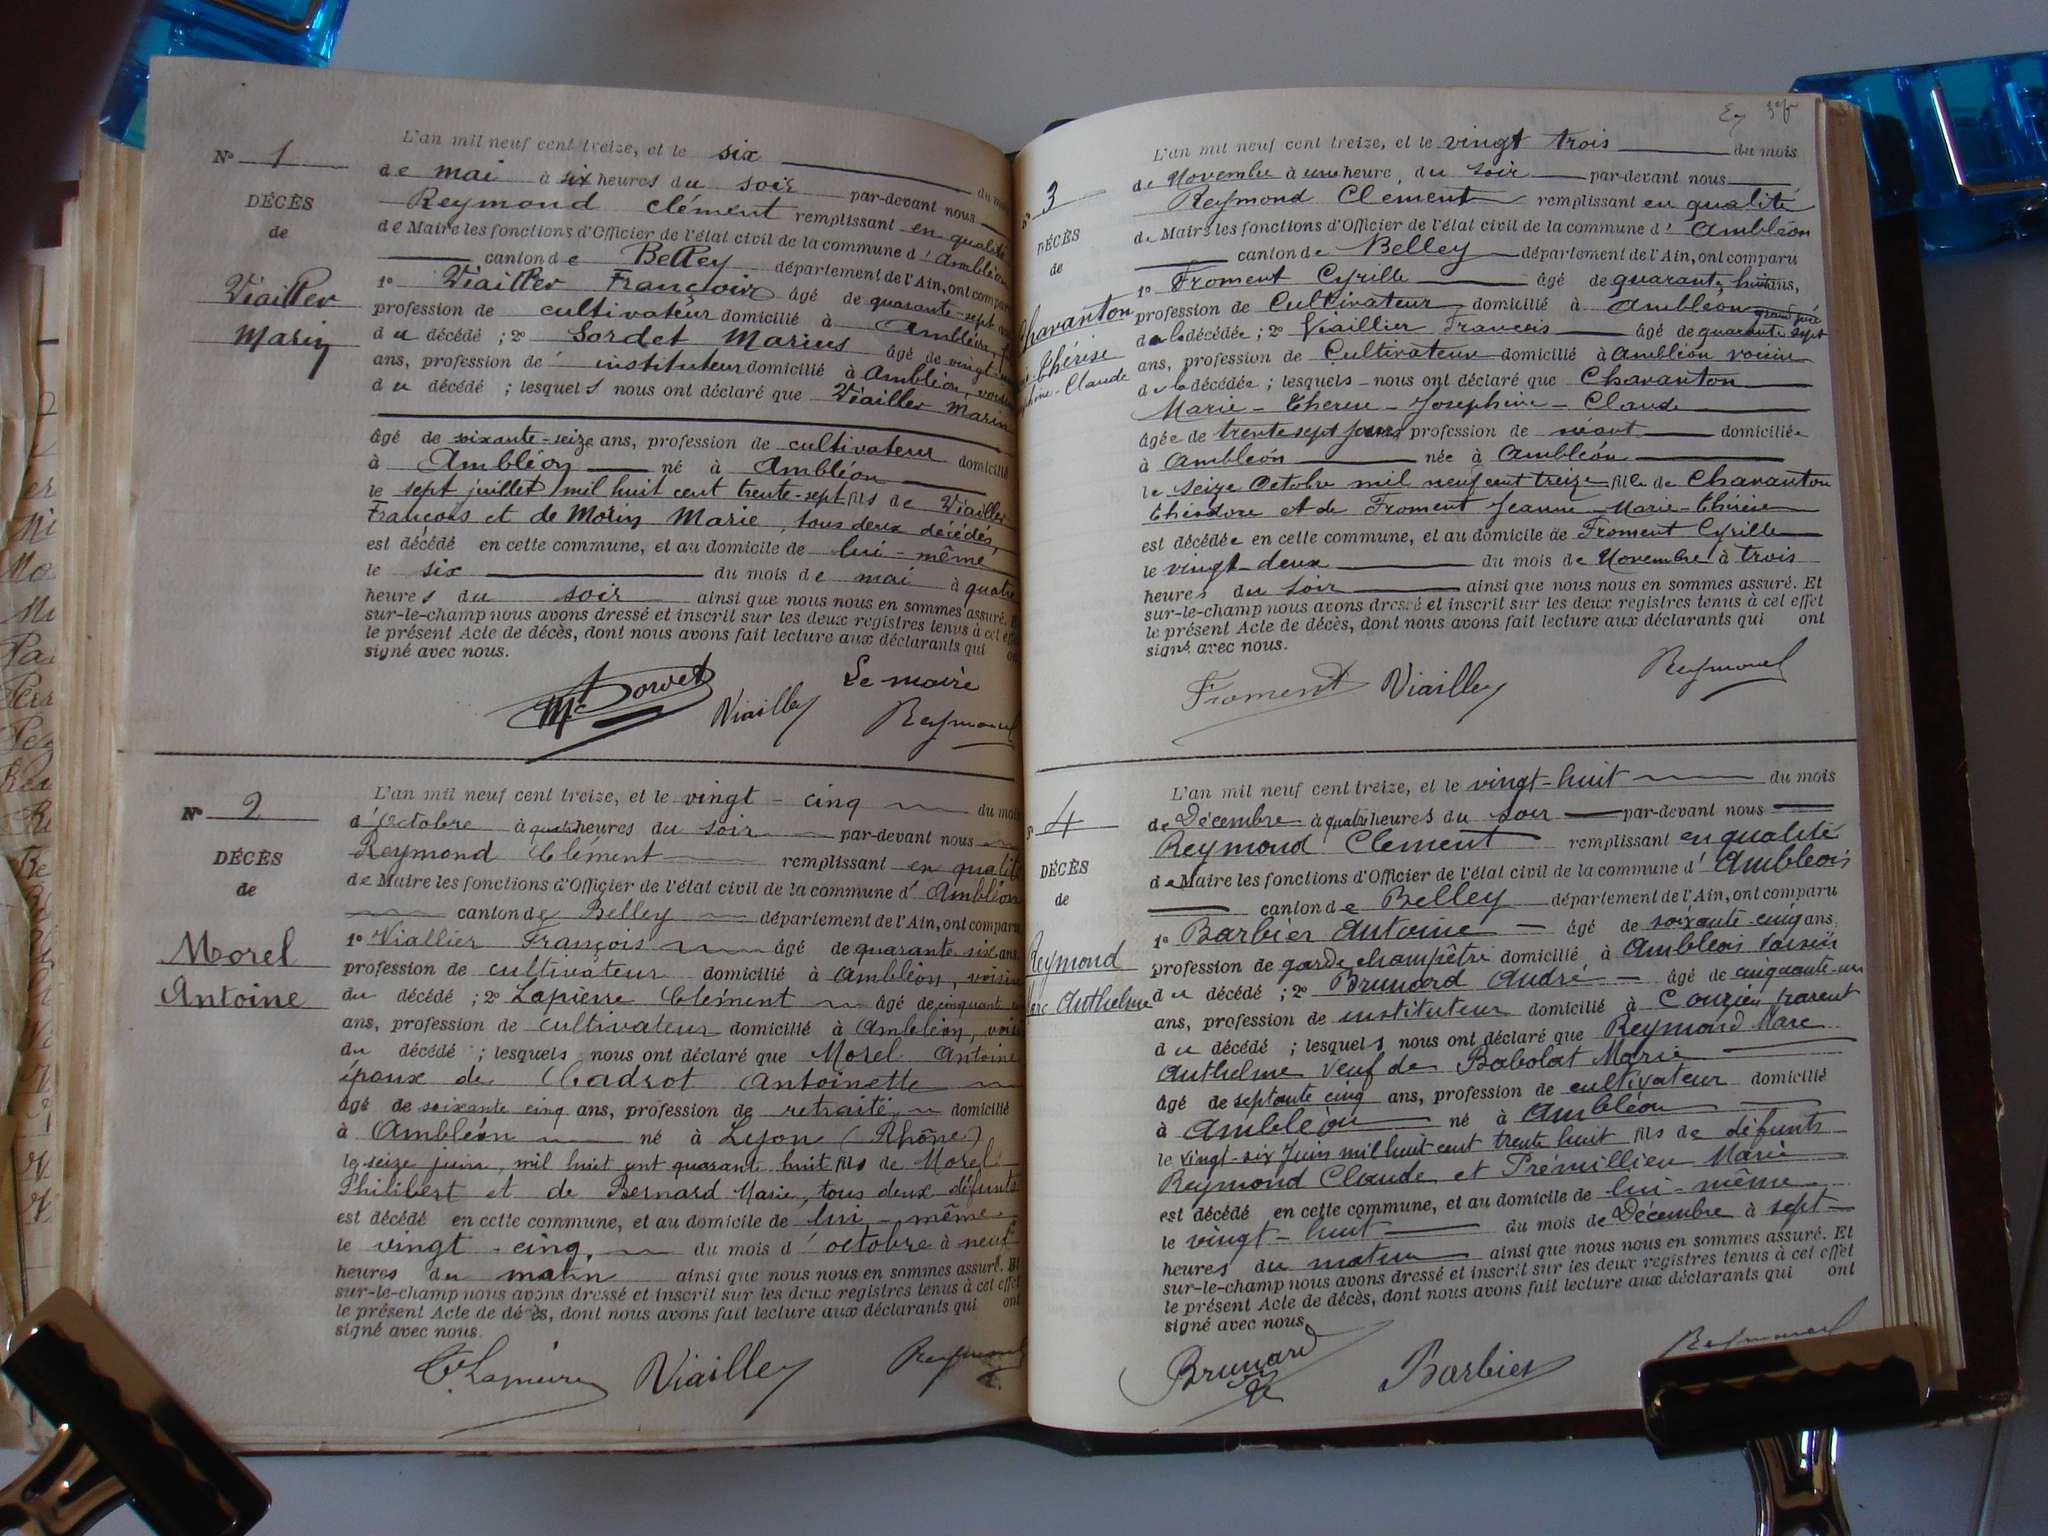 N° 1
DÉCÈS
de
Viallier
Marin
L'an mil neuf cent treize, et le six du mois
de mai à six heures du soir par-devant nous
Reymond Clément remplissant en qualité
de Maire les fonctions d'Officier de l'état civil de la commune d'Ambléon
canton de Belley département de l'Ain, ont comparu
1° Viallier François âgé de quarante-sept ans
profession de cultivateur domicilié à Ambléon,
du décédé ; 2° Sordet Marius âgé de vingt-
ans, profession de instituteur domicilié à Ambléon, voisin
du décédé ; lesquels nous ont déclaré que Viallier Marin
âgé de soixante-seize ans, profession de cultivateur domicilié
à Ambléon né à Ambléon
le sept juillet mil huit cent trente-sept fils de Viallier
François et de Morin Marie, tous deux décédés,
est décédé en cette commune, et au domicile de lui-même
le six du mois de mai à quatre
heures du soir ainsi que nous nous en sommes assuré. Et
sur-le-champ nous avons dressé et inscrit sur les deux registres tenus à cet effet
le présent Acte de décès, dont nous avons fait lecture aux déclarants qui ont
signé avec nous.
Le maire
Viailley Reymond
N° 2
DÉCÈS
de
Morel
Antoine
L'an mil neuf cent treize, et le vingt-cinq du mois
d'Octobre à quatre heures du soir par-devant nous
Reymond Clément remplissant en qualité
de Maire les fonctions d'Officier de l'état civil de la commune d'Ambléon
canton de Belley département de l'Ain, ont comparu
1° Viallier François âgé de quarante six ans
profession de cultivateur domicilié à Ambléon, voisin
du décédé ; 2° Lapierre Clément âgé de cinquante
ans, profession de cultivateur domicilié à Ambléon, voisin
du décédé ; lesquels nous ont déclaré que Morel Antoine
époux de Cadrot Antoinette
âgé de soixante cinq ans, profession de retraité domicilié
à Ambléon né à Lyon (Rhône)
le seize juin mil huit cent quarante huit fils de Morel
Philibert et de Bernard Marie, tous deux défunts
est décédé en cette commune, et au domicile de lui-même
le vingt-cinq, du mois d'octobre à neuf
heures du matin ainsi que nous nous en sommes assuré. Et
sur-le-champ nous avons dressé et inscrit sur les deux registres tenus à cet effet
le présent Acte de décès, dont nous avons fait lecture aux déclarants qui ont
signé avec nous.
C. Lapierre Viailley Reymond
N° 3
DÉCÈS
de
Chavanton
Thérèse
Claude
L'an mil neuf cent treize, et le vingt trois du mois
de Novembre à une heure, du soir par-devant nous
Reymond Clément remplissant en qualité
de Maire les fonctions d'Officier de l'état civil de la commune d'Ambléon
canton de Belley département de l'Ain, ont comparu
1° Froment Cyrille âgé de quarante huit ans,
profession de Cultivateur domicilié à Ambléon grand père
de la décédée ; 2° Viaillier Francois âgé de quarante sept
ans, profession de Cultivateur domicilié à Ambléon voisin
de la décédée ; lesquels nous ont déclaré que Chavanton
Marie-Thérèse-Josephine-Claude
âgée de trente sept jours profession de néant domiciliée
à Ambléon née à Ambléon
le seize Octobre mil neuf cent treize fille de Chavanton
Théodore et de Froment Jeanne-Marie-Thérèse
est décédée en cette commune, et au domicile de Froment Cyrille
le vingt deux du mois de Novembre à trois
heures du soir ainsi que nous nous en sommes assuré. Et
sur-le-champ nous avons dressé et inscrit sur les deux registres tenus à cet effet
le présent Acte de décès, dont nous avons fait lecture aux déclarants qui ont
signé avec nous.
Froment Viailley Reymond
N° 4
DÉCÈS
de
Reymond
Marc Anthelme
L'an mil neuf cent treize, et le vingt-huit du mois
de Décembre à quatre heures du soir par-devant nous
Reymond Clément remplissant en qualité
de Maire les fonctions d'Officier de l'état civil de la commune d'Ambléon
canton de Belley département de l'Ain, ont comparu
1° Barbier Antoine âgé de soixante-cinq ans
profession de garde champêtre domicilié à Ambléon voisin
du décédé ; 2° Brunard André âgé de cinquante-un
ans, profession de instituteur domicilié à Couzieu parent
du décédé ; lesquels nous ont déclaré que Reymond Marc
Anthelme veuf de Babolat Marie
âgé de septante cinq ans, profession de cultivateur domicilié
à Ambléon né à Ambléon
le vingt-six Juin mil huit cent trente huit fils de défunts
Reymond Claude et Prémillieu Marie
est décédé en cette commune, et au domicile de lui-même
le vingt-huit du mois de Décembre à sept
heures du matin ainsi que nous nous en sommes assuré. Et
sur-le-champ nous avons dressé et inscrit sur les deux registres tenus à cet effet
le présent Acte de décès, dont nous avons fait lecture aux déclarants qui ont
signé avec nous.
Brunard Barbier Reymond